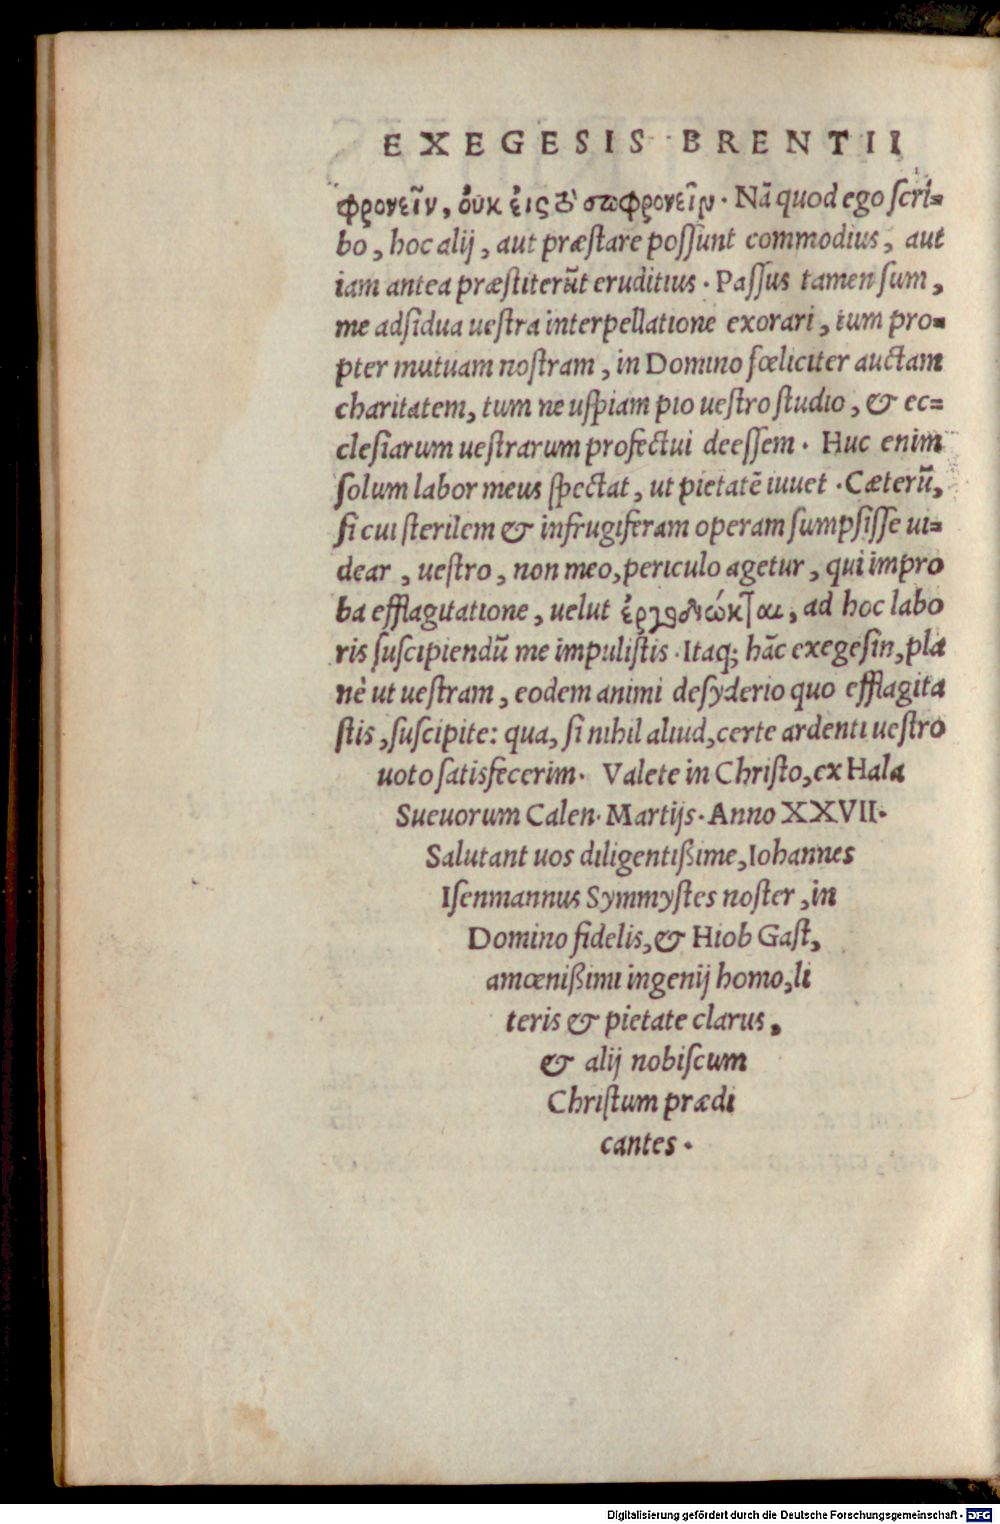 EXEGESIS BRENTII
φρονεῖν, οὐκ εἰς τὸ σωφρονεῖν. Nã quod ego scri-
bo, hoc alij, aut præstare possunt commodius, aut
iam antea præstiterũt eruditius. Passus tamen sum,
me adsidua uestra interpellatione exorari, tum pro-
pter mutuam nostram, in Domino fœliciter auctam
charitatem, tum ne uspiam pio uestro studio, & ec-
clesiarum uestrarum profectui deessem. Huc enim
solum labor meus spectat, ut pietatẽ iuuet. Cæterũ,
si cui sterilem & infrugiferam operam sumpsisse ui-
dear, uestro, non meo, periculo agetur, qui impro
ba efflagitatione, uelut, ad hoc labo
ris suscipiendũ me impulistis. Itaq; hãc exegesin, pla
nè ut uestram, eodem animi desyderio quo efflagita
stis, suscipite: qua, si nihil aliud, certe ardenti uestro
uoto satisfecerim. Valete in Christo, ex Hala
Sueuorum Calen. Martijs. Anno XXVII.
Salutant uos diligentißime, Iohannes
Isenmannus Symmystes noster, in
Domino fidelis, & Hiob Gast,
amœnißimi ingenij homo, li
teris & pietate clarus,
& alij nobiscum
Christum prædi
cantes.
Digitalisierung gefördert durch die Deutsche Forschungsgemeinschaft - DFG